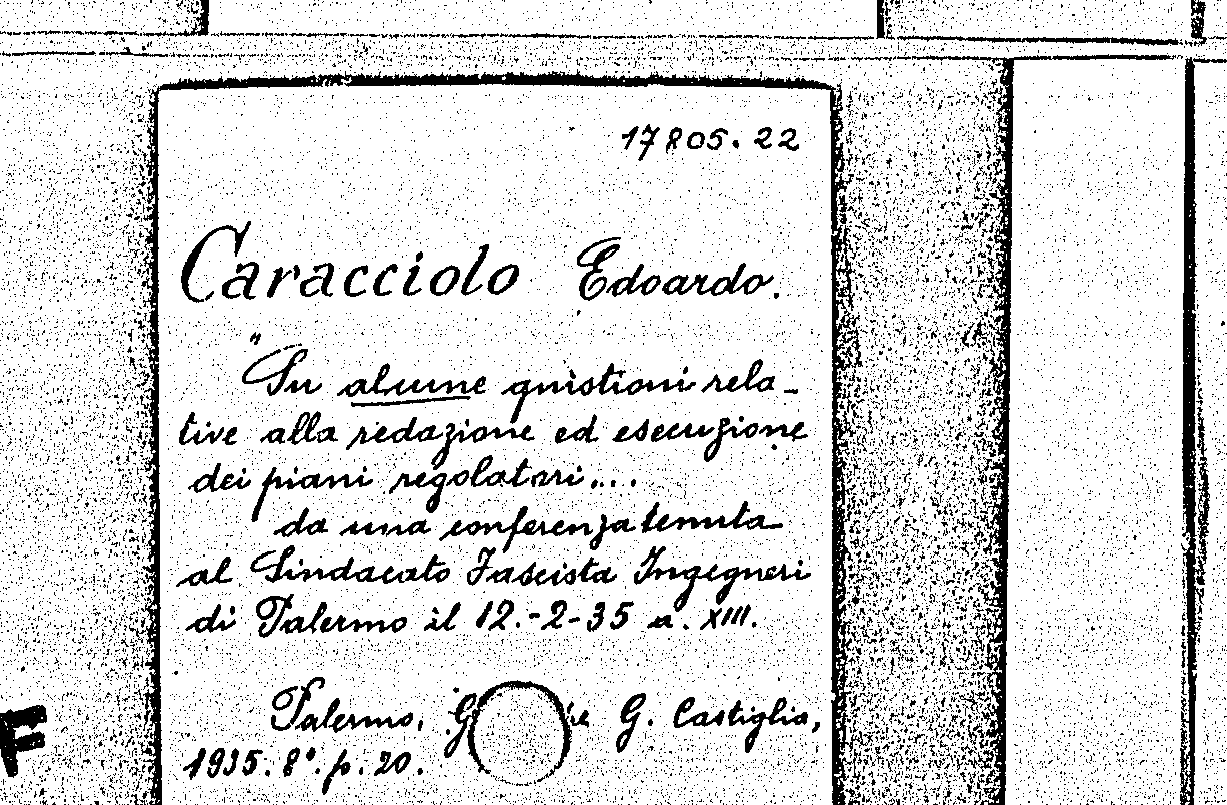 17805.22
Caracciolo Edoardo.
"Su alcune quistioni rela-
tive alla redazione ed esecuzione
dei piani regolatori...
da una conferenza tenuta
al Sindacato Fascista Ingegneri
di Palermo il 12.-2-35 a. XIII.
Palermo, G. Castiglia,
1935. 8°. p. 20.
F